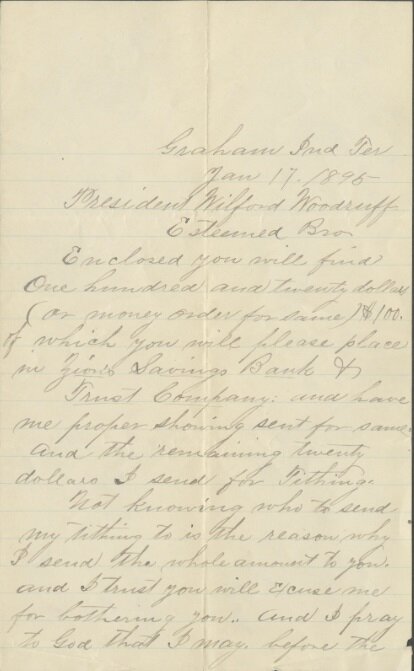 Graham Ind Ter
Jan 17. 1895
President Wilford Woodruff
Esteemed Bro,
Enclosed you will find
One hundred and twenty dollars
(or money order for same) $100.
of which you will please place
in Zion's Savings Bank &
Trust Company: and have
me proper showing sent for same.
and the remaining twenty
dollars I send for Tithing.
Not knowing who to send
my tithing to is the reason why
I send the whole amount to you.
and I trust you will Excuse me
for bothering you.. and I pray
to God that I may. before the